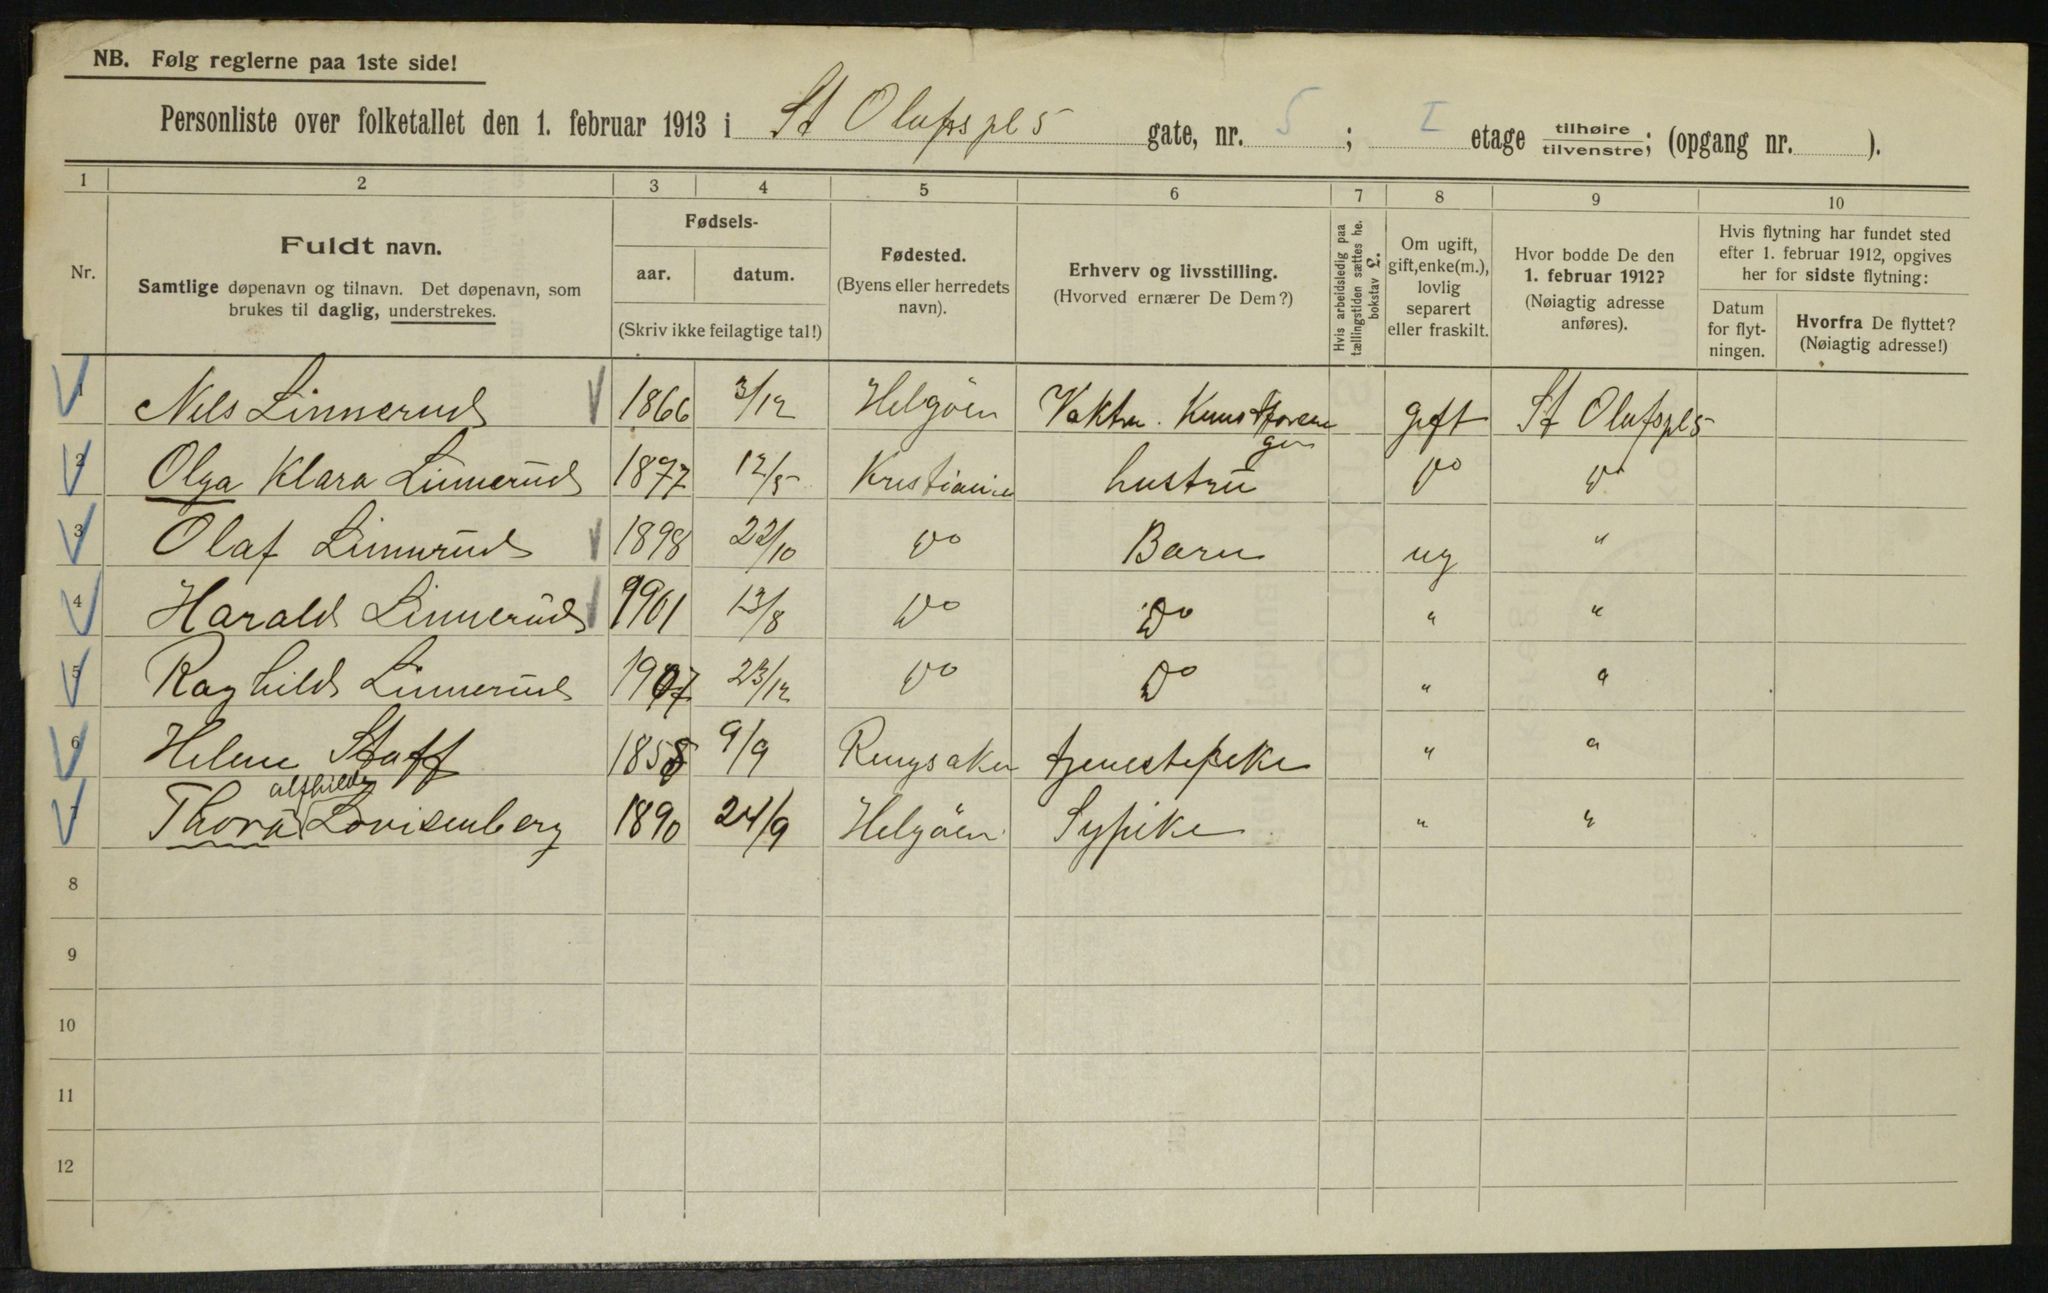 NB. Følg reglerne paa 1ste side!
Personliste over folketallet den 1. februar 1913 i St Olafspl 5 gate, nr. 5; I etage tilhøire tilvenstre; (opgang nr. ).
1 2 3 4 5 6 7 8 9 10
Nr.
Fuldt navn.
Samtlige døpenavn og tilnavn. Det døpenavn, som
brukes til daglig, understrekes.
Fødsels-
aar. datum.
(Skriv ikke feilagtige tal!)
Fødested.
(Byens eller herredets
navn).
Erhverv og livsstilling.
(Hvorved ernærer De Dem?)
Hvis arbeidsledig paa
tællingstiden sættes he.
bokstav L.
Om ugift,
gift, enke(m.),
lovlig
separert
eller fraskilt.
Hvor bodde De den
1. februar 1912?
(Nøiagtig adresse
anføres).
Hvis flytning har fundet sted
efter 1. februar 1912, opgives
her for sidste flytning:
Datum
for flyt-
ningen.
Hvorfra De flyttet?
(Nøiagtig adresse!)
1 Nils Linnerud 1866 3/12 Helgöen Vaktm. Kunstforenin gen gift St Olafspl 5
2 Olga Klara Linnerud 1877 12/5 Kristiania hustru Do Do
3 Olaf Linnerud 1898 22/10 Do Barn ug "
4 Harald Linnerud 1901 13/8 Do Do " "
5 Raghild Linnerud 1907 23/12 Do Do " "
6 Helene Staff 1858 9/9 Ringsaker tjenestepike " "
alfhilda
7 Thora Lovisenberg 1890 24/9 Helgöen Sypike " "
8
9
10
11
12